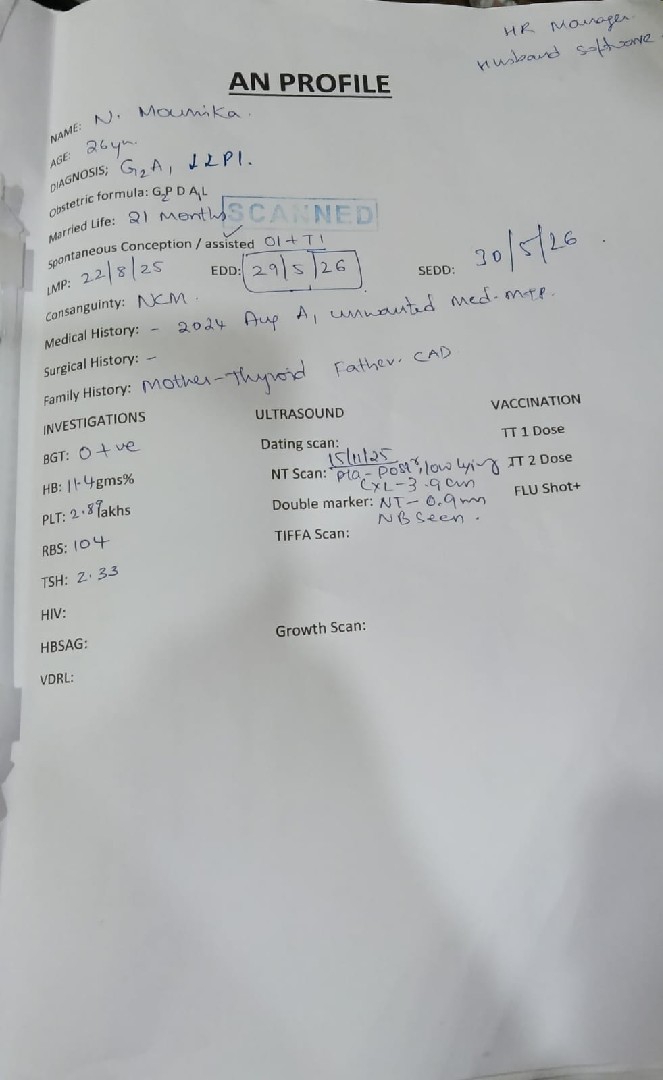 HR Manager
Husband Software
AN PROFILE
NAME: N. Mounika.
AGE: 26yrs
DIAGNOSIS; G2A1 ↓LPl.
Obstetric formula: G2P D A1L
SCANNED
Married Life: 21 Months
Spontaneous Conception / assisted OI + TI
LMP: 22/8/25 EDD: 29/5/26 SEDD: 30/5/26.
Consanguinty: NCM.
Medical History: - 2024 Aug A1 unwanted med. MTP.
Surgical History: -
Family History: Mother-Thyroid Father. CAD
INVESTIGATIONS ULTRASOUND VACCINATION
BGT: O +ve Dating scan: TT 1 Dose
15/11/25
HB: 11.4gms% NT Scan: Pla - Postr, low lying TT 2 Dose
CxL-3.9cm
PLT: 2.89lakhs Double marker: NT - 0.9mm FLU Shot+
NB Seen.
RBS: 104 TIFFA Scan:
TSH: 2.33
HIV:
HBSAG: Growth Scan:
VDRL: